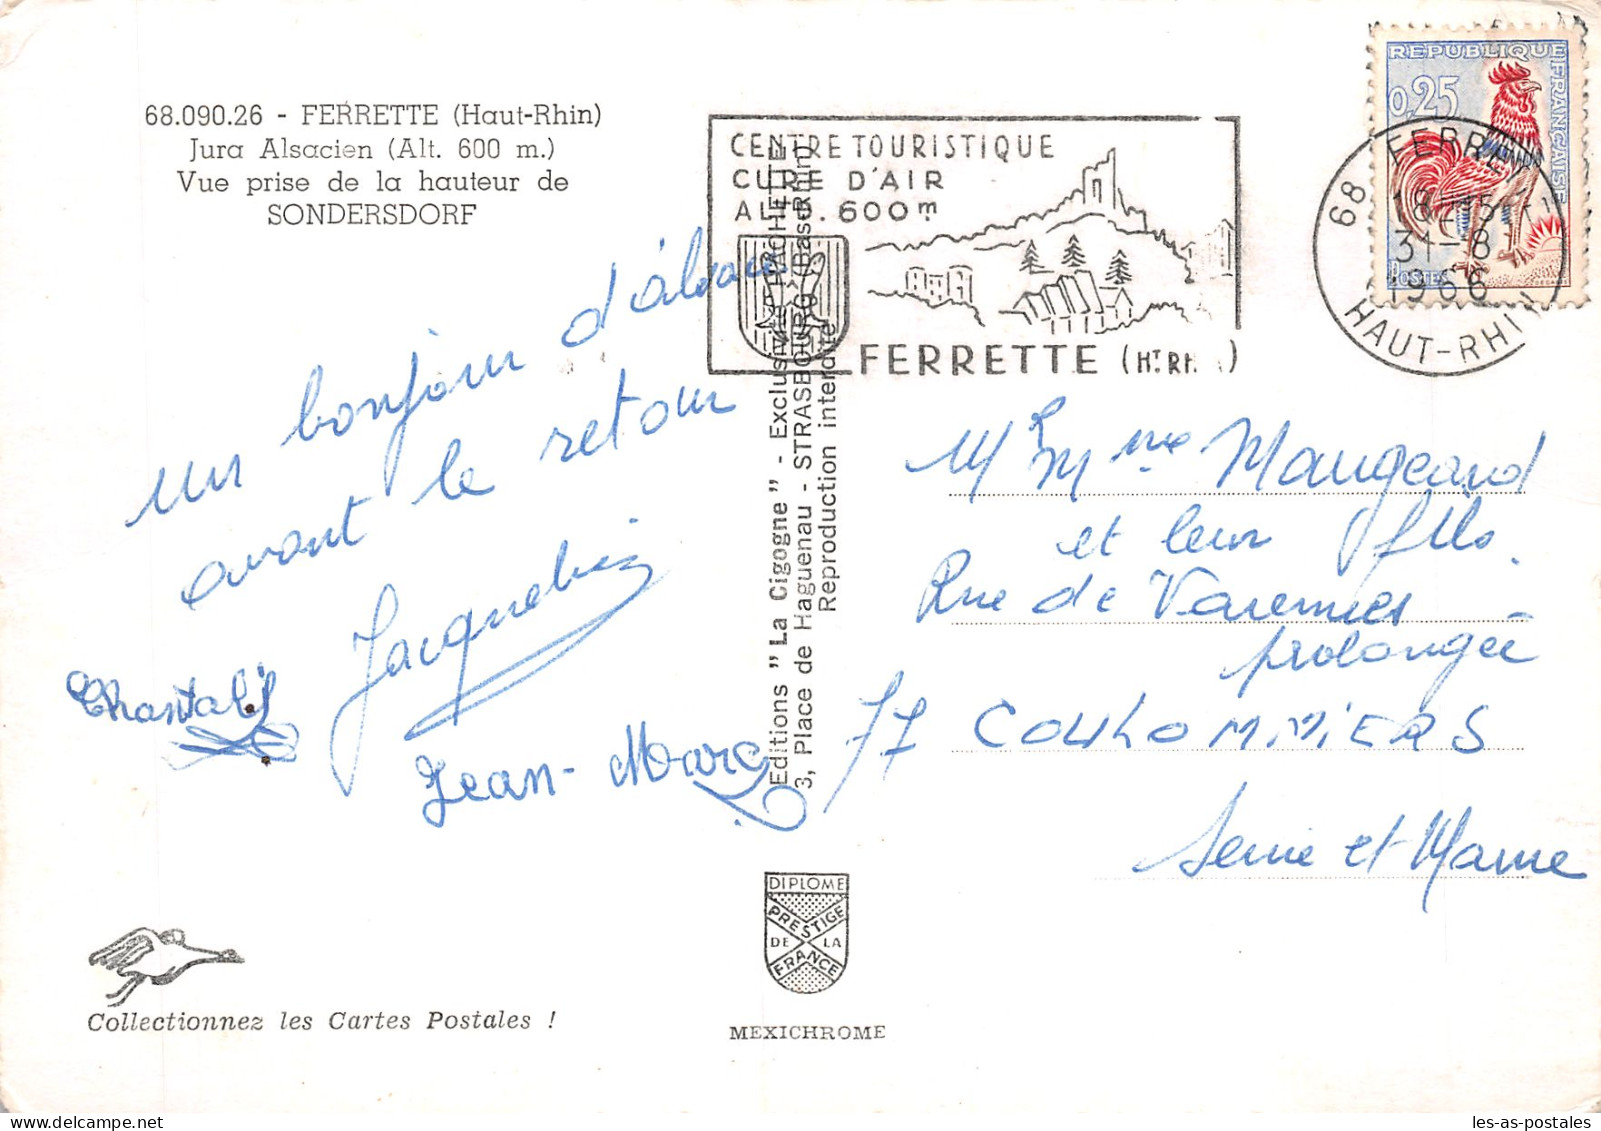 68.090.26 - FERRETTE (Haut-Rhin)
Jura Alsacien (Alt. 600 m.)
Vue prise de la hauteur de
SONDERSDORF
un bonjour d'alsace
avant le retour
Jacqueline
Chantal
Jean-Marc
Collectionnez les Cartes Postales !
Editions " La Cigogne " - Exclusivité HACHETTE
3, Place de Haguenau - STRASBOURG (Bas-Rhin)
Reproduction interdite
DIPLOME
PRESTIGE
DE LA
FRANCE
MEXICHROME
CENTRE TOURISTIQUE
CURE D'AIR
ALT. 600m
FERRETTE (HT RHIN)
REPUBLIQUE FRANÇAISE
0,25
POSTES
DECARIS
68 FERRETTE
18H15
31-8
1966
HAUT-RHIN
M Mme Maugeard
et leur fils.
Rue de Varennes -
prolongée
77 COULOMMIERS
Seine et Marne
les-as-postales